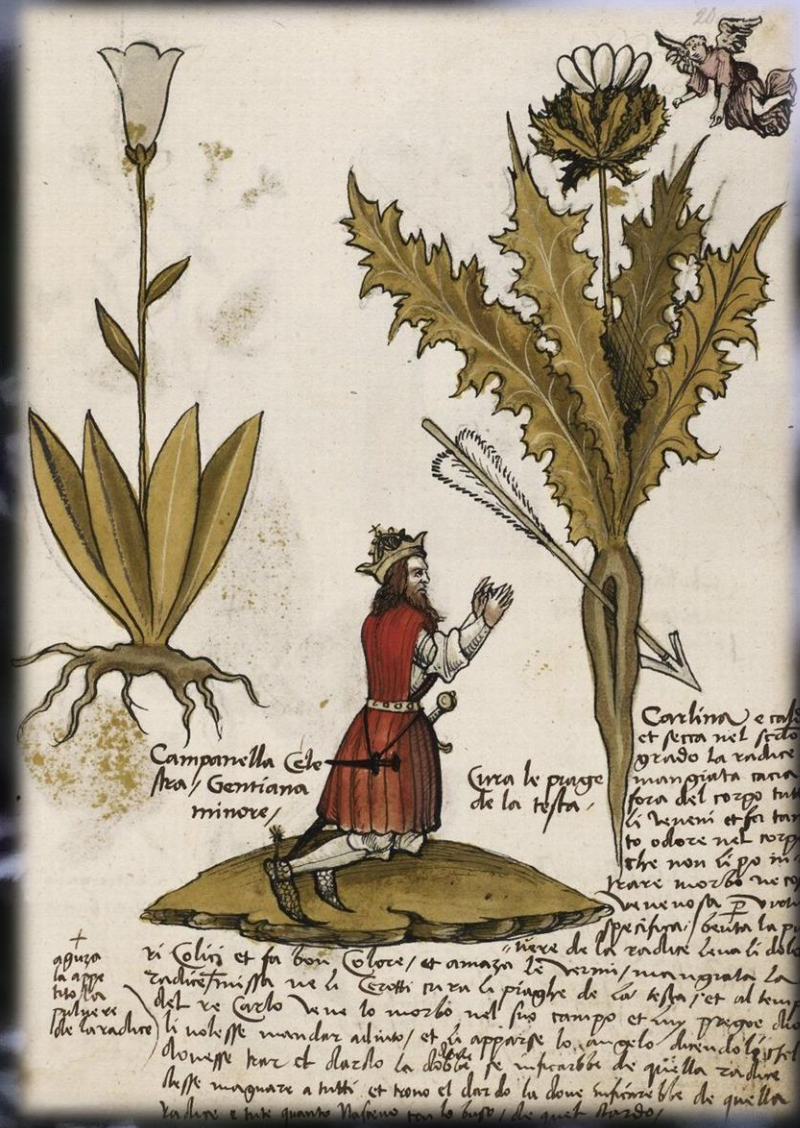 20
Campanella Cele
stra / Gentiana
minore /
Cura le piage
de la testa.
Carlina e cal
et secca nel
grado la radice
mangiata cacia
fora del corpo tut
li veneni et fa tan
to odore nel corp
che non li po in
trare morbo ne co
venenosa
specifica / beuta la p
+
aguza
la appe
tito / la
pulvere
de la radice
ri Colici et fa bon Colore / et amaza le vermi / mangiata la
tiere de la radice leva li dolo
radice + missa ne li Cerotti cura li piaghe de la testa / et al temp
del re Carlo vene lo morbo nel suo campo et luy pregoe dio
li volesse mandar adiuto / et li apparse lo angelo dicendoli
dovesse trar el dardo la dove se inficarebbe de quella radice
desse magnare a tutti et trono el dardo la dove inficarebbe de quella
radice e tute quante nasceno con lo buso / de quel dardo /